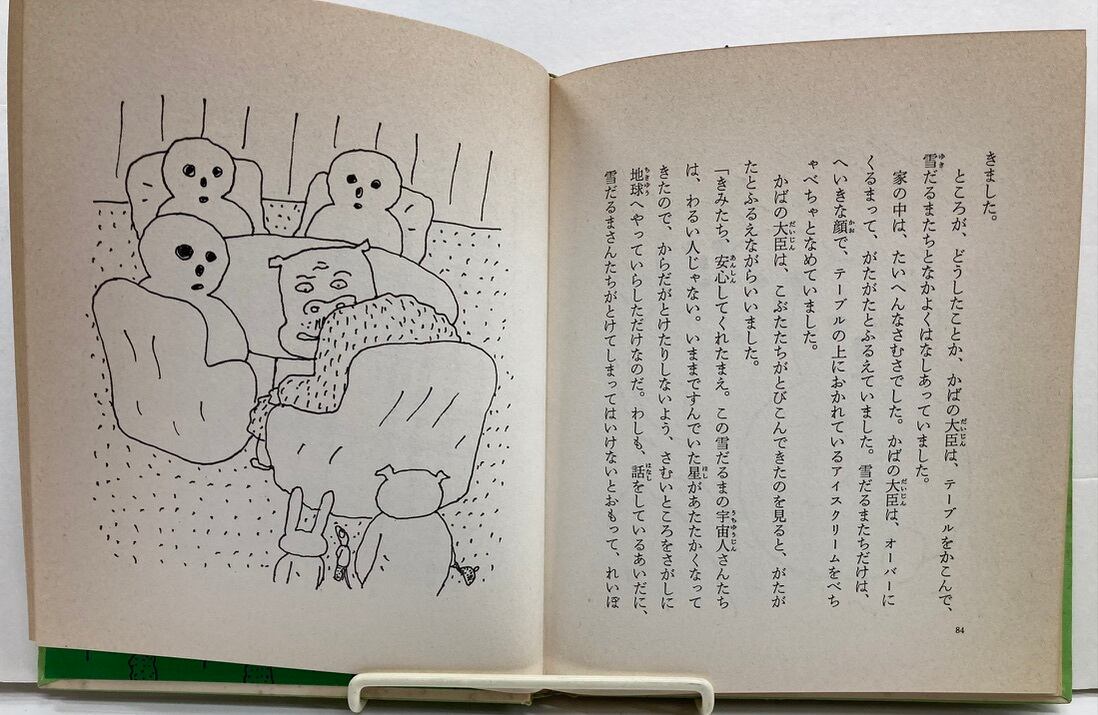 きました。
ところが、どうしたことか、かばの大臣は、テーブルをかこんで、
雪だるまたちとなかよくはなしあっていました。
家の中は、たいへんなさむさでした。かばの大臣は、オーバーに
くるまって、がたがたとふるえていました。雪だるまたちだけは、
へいきな顔で、テーブルの上におかれているアイスクリームをべち
ゃべちゃとなめていました。
かばの大臣は、こぶたたちがとびこんできたのを見ると、がたが
たとふるえながらいいました。
「きみたち、安心してくれたまえ。この雪だるまの宇宙人さんたち
は、わるい人じゃない。いままですんでいた星があたたかくなって
きたので、からだがとけたりしないよう、さむいところをさがしに
地球へやっていらしただけなのだ。わしも、話をしているあいだに、
雪だるまさんたちがとけてしまってはいけないとおもって、れいぼ
84